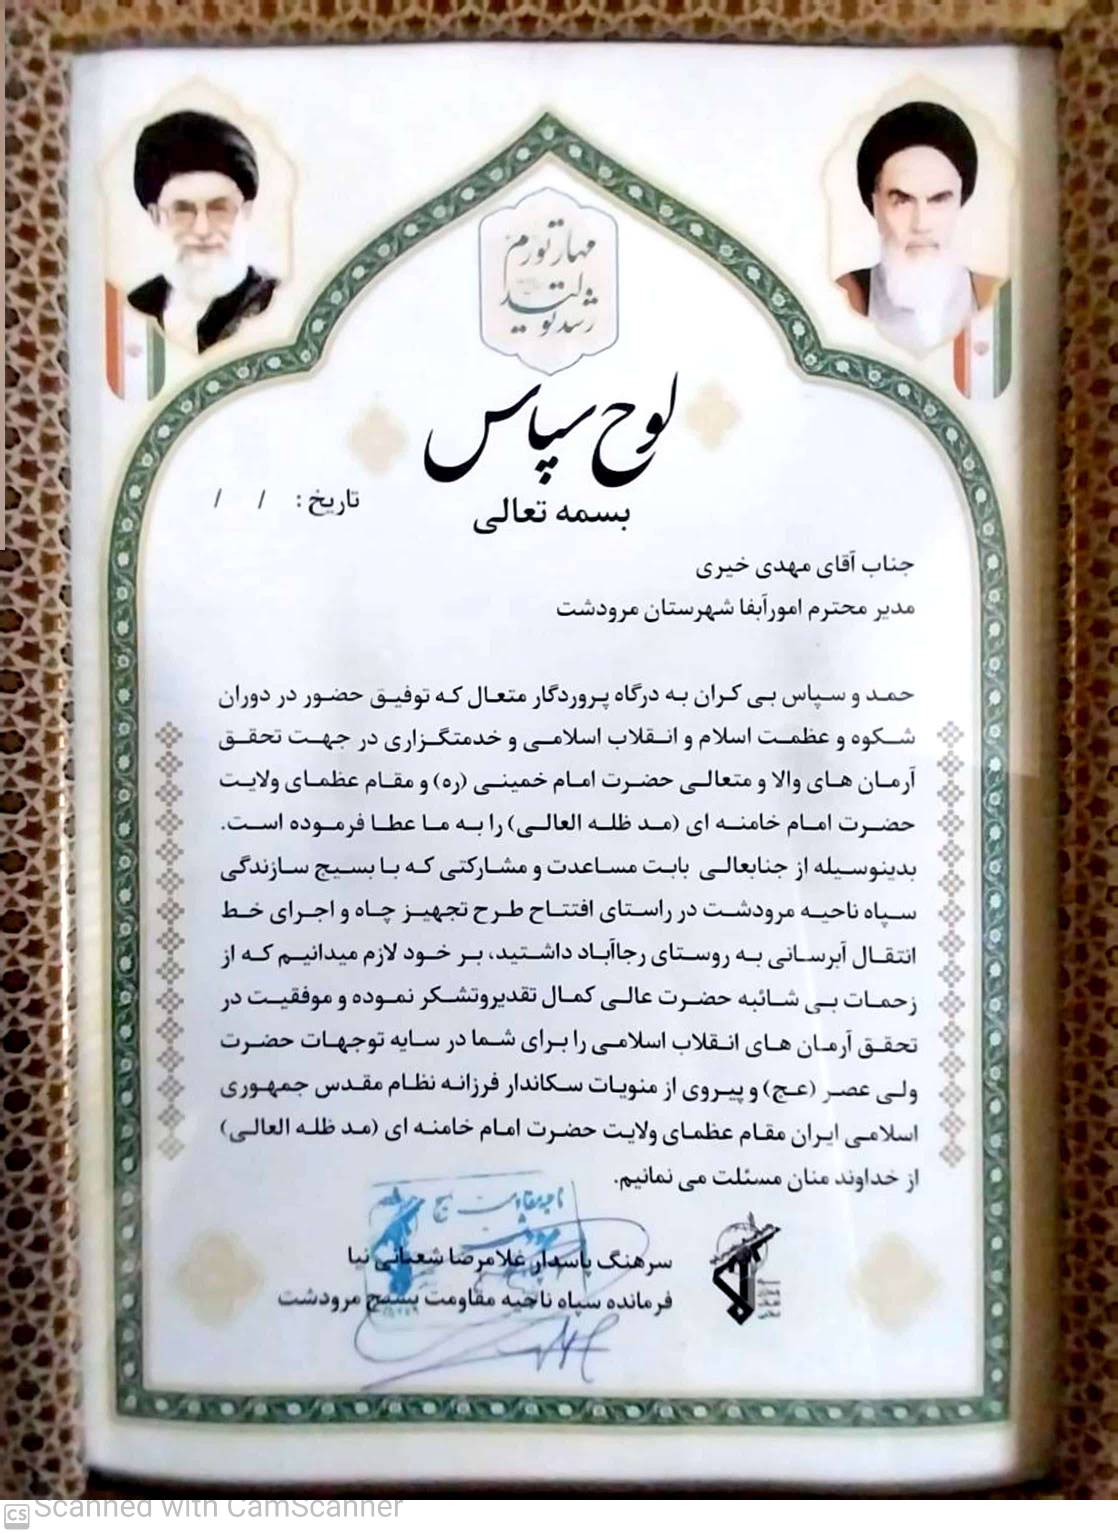 مهار تورم
رشد تولید
لوح سپاس
بسمه تعالی
تاریخ :    /    /
جناب آقای مهدی خیری
مدیر محترم امورآبفا شهرستان مرودشت
حمد و سپاس بی کران به درگاه پروردگار متعال که توفیق حضور در دوران
شکوه و عظمت اسلام و انقلاب اسلامی و خدمتگزاری در جهت تحقق
آرمان های والا و متعالی حضرت امام خمینی (ره) و مقام عظمای ولایت
حضرت امام خامنه ای (مد ظله العالی) را به ما عطا فرموده است.
بدینوسیله از جنابعالی بابت مساعدت و مشارکتی که با بسیج سازندگی
سپاه ناحیه مرودشت در راستای افتتاح طرح تجهیز چاه و اجرای خط
انتقال آبرسانی به روستای رجاآباد داشتید، بر خود لازم میدانیم که از
زحمات بی شائبه حضرت عالی کمال تقدیروتشکر نموده و موفقیت در
تحقق آرمان های انقلاب اسلامی را برای شما در سایه توجهات حضرت
ولی عصر (عج) و پیروی از منویات سکاندار فرزانه نظام مقدس جمهوری
اسلامی ایران مقام عظمای ولایت حضرت امام خامنه ای (مد ظله العالی)
از خداوند منان مسئلت می نمانیم.
ناحیه مقاومت بسیج
مرودشت
سرهنگ پاسدار غلامرضا شعبانی نیا
فرمانده سپاه ناحیه مقاومت بسیج مرودشت
CS Scanned with CamScanner